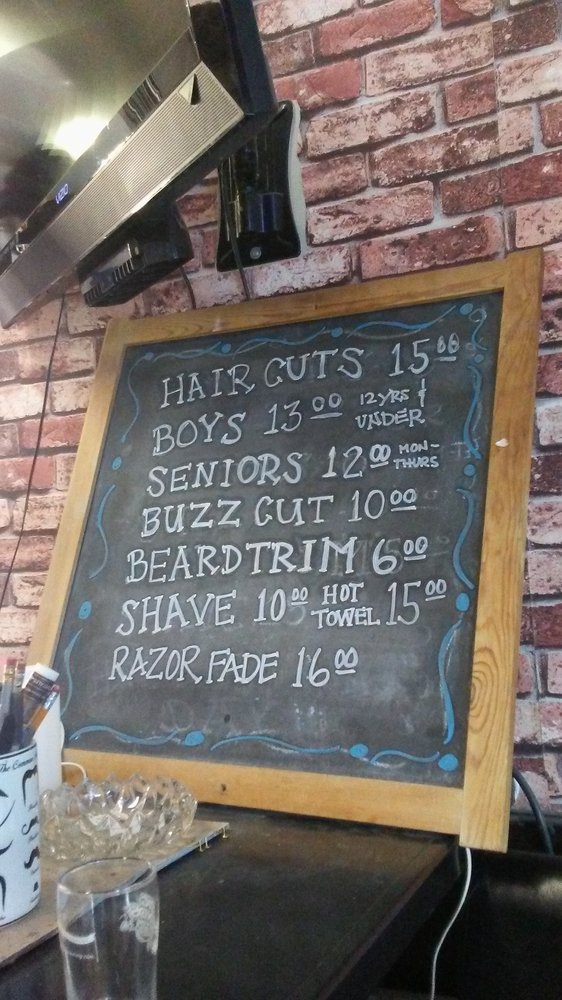 VIZIO
HAIR CUTS 15.00
BOYS 13.00 12YRS & UNDER
SENIORS 12.00 MON-THURS
BUZZ CUT 10.00
BEARD TRIM 6.00
SHAVE 10.00 HOT TOWEL 15.00
RAZOR FADE 16.00
The Common